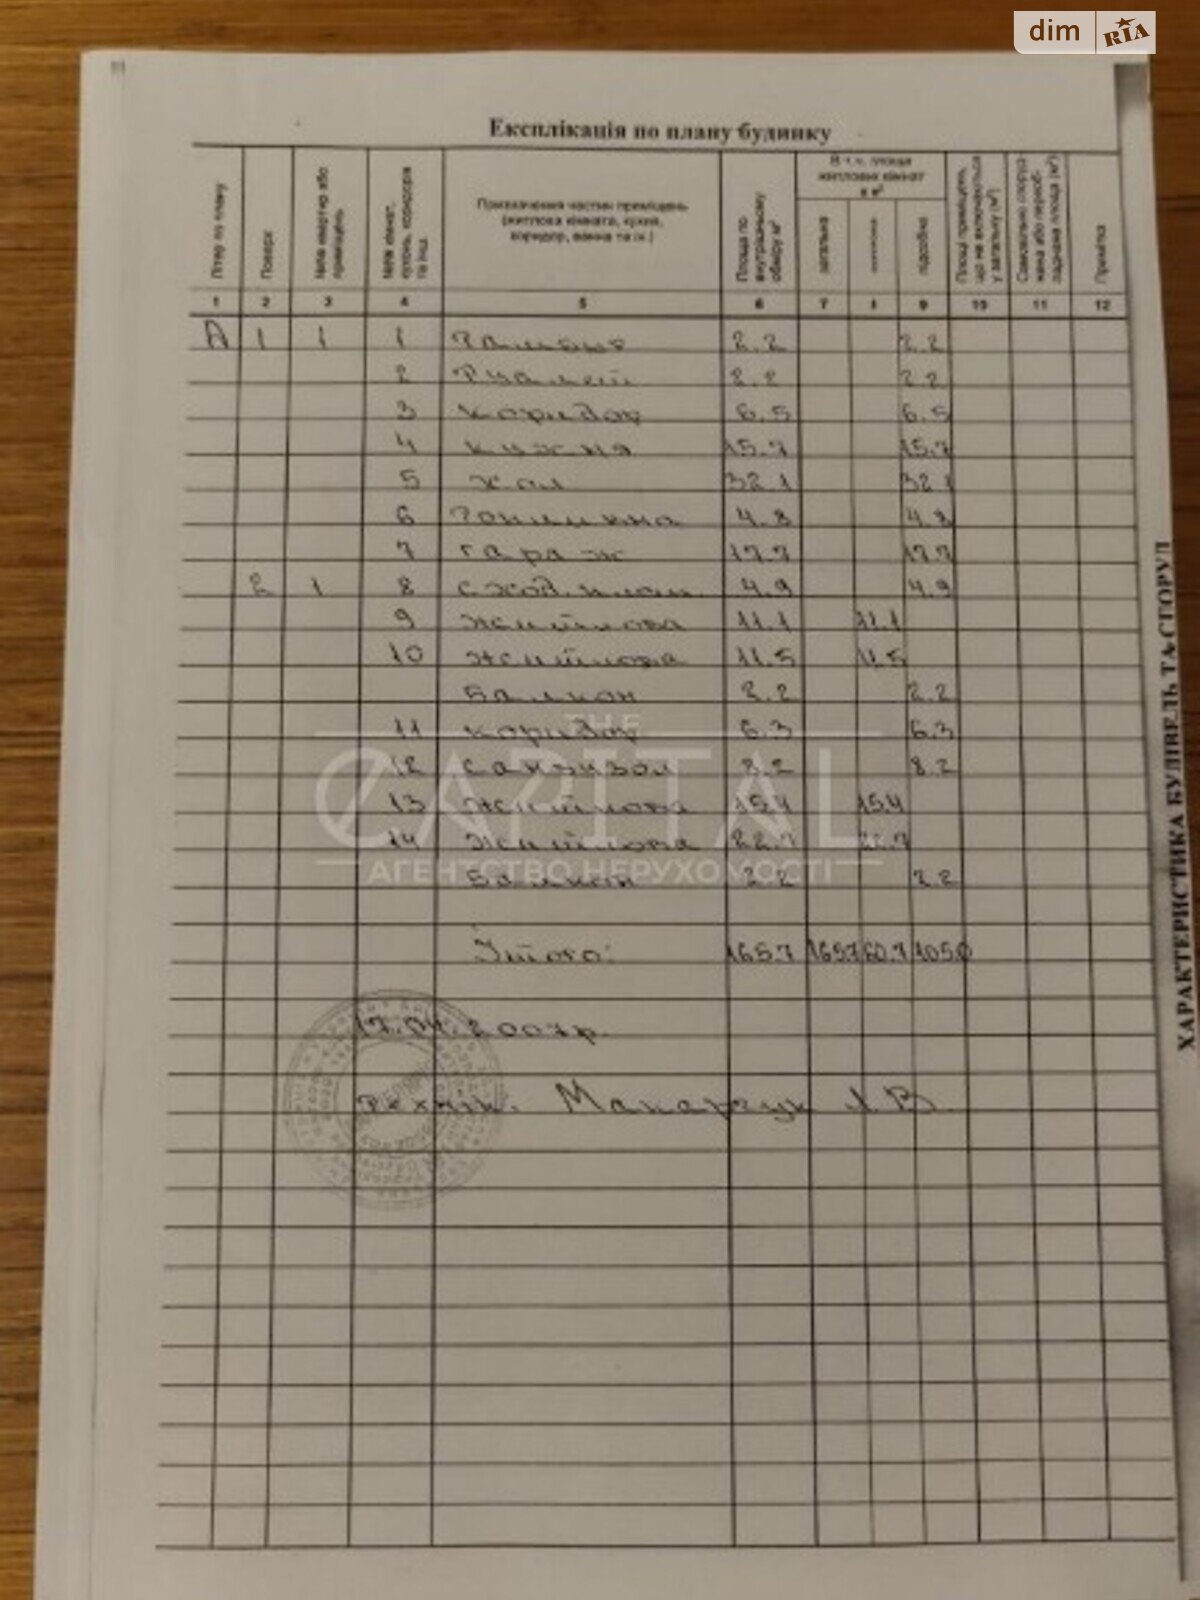 dim RIA
Експлікація по плану будинку
Літер по плану
Поверх
№№ квартир або приміщень
№№ кімнат, кухонь, коридорів та інш.
Призначення частин приміщень (житлова кімната, кухня, коридор, ванна та ін.)
Площа по внутрішньому обміру м²
В т.ч. площа житлових кімнат в м²
загальна
підсобна
Площі приміщень, що не включаються у загальну (м²)
Примітка
1 2 3 4 5 6 7 8 9 10 11 12
А 1 1 1 2.2 2.2
2 Туалет 2.2 2.2
3 коридор 6.5 6.5
4 кухня 15.7 15.7
5 хол 32.1 32.1
6 4.8 4.8
7 гараж 17.7 17.7
2 1 8 4.9 4.9
9 житлова 11.1 11.1
10 житлова 11.5 11.5
балкон 2.2 2.2
11 коридор 6.3 6.3
12 санвузол 8.2 8.2
13 житлова 15.4 15.4
14 житлова 22.7 22.7
балкон 2.2 2.2
Итого: 165.7 165.7 60.7 105.0
17.04.2007р.
Технік. Макарчук В.
THE CAPITAL
АГЕНТСТВО НЕРУХОМОСТІ
ХАРАКТЕРИСТИКА БУДІВЕЛЬ ТА СПОРУД